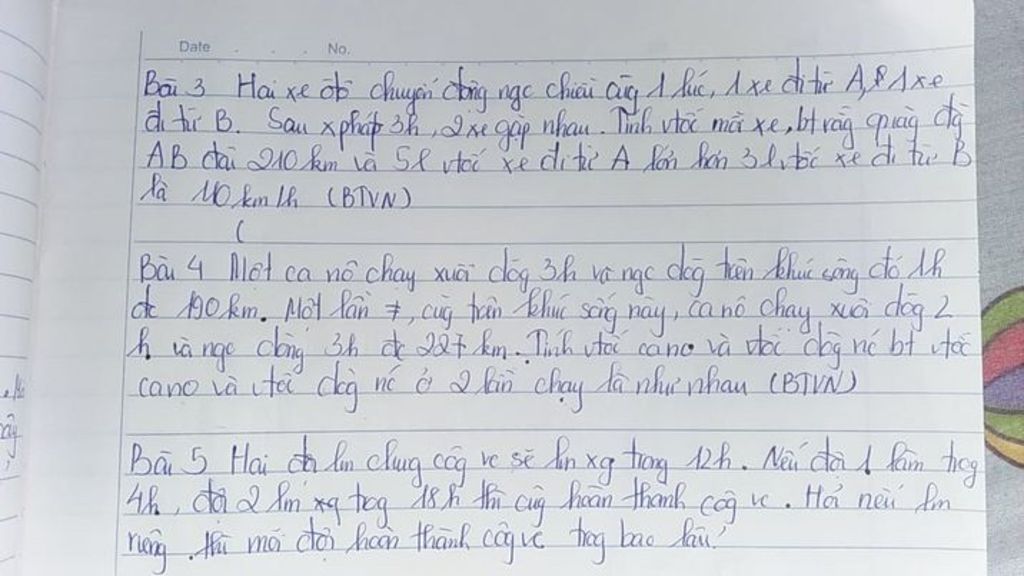 Date . . . No.
Bài 3 Hai xe ôtô chuyển động ngc chiều cùg 1 lúc, 1 xe đi từ A, & 1 xe
đi từ B. Sau xphát 3h, 2 xe gặp nhau. Tính vtốc mỗi xe, bt rằg quãg đg
AB dài 210 km và 5l vtốc xe đi từ A lớn hơn 3l vtốc xe đi từ B
là 110 km/h (BTVN)
(
Bài 4 Một ca nô chạy xuôi dòg 3h và ngc dòg trên khúc sông đó 1h
đc 190 km. Một lần ≠, cũg trên khúc sông này, ca nô chạy xuôi dòg 2
h và ngc dòng 3h đc 227 km. Tính vtốc cano và vtốc dòg nc bt vtốc
cano và vtốc dòg nc ở 2 lần chạy là như nhau (BTVN)
Bài 5 Hai đội lm chung côg vc sẽ lm xg trong 12h. Nếu đội 1 làm trog
4h, đội 2 lm xg trog 18h thì cũg hoàn thành côg vc. Hỏi nếu lm
riêng thì mỗi đội hoàn thành côg vc trog bao lâu?